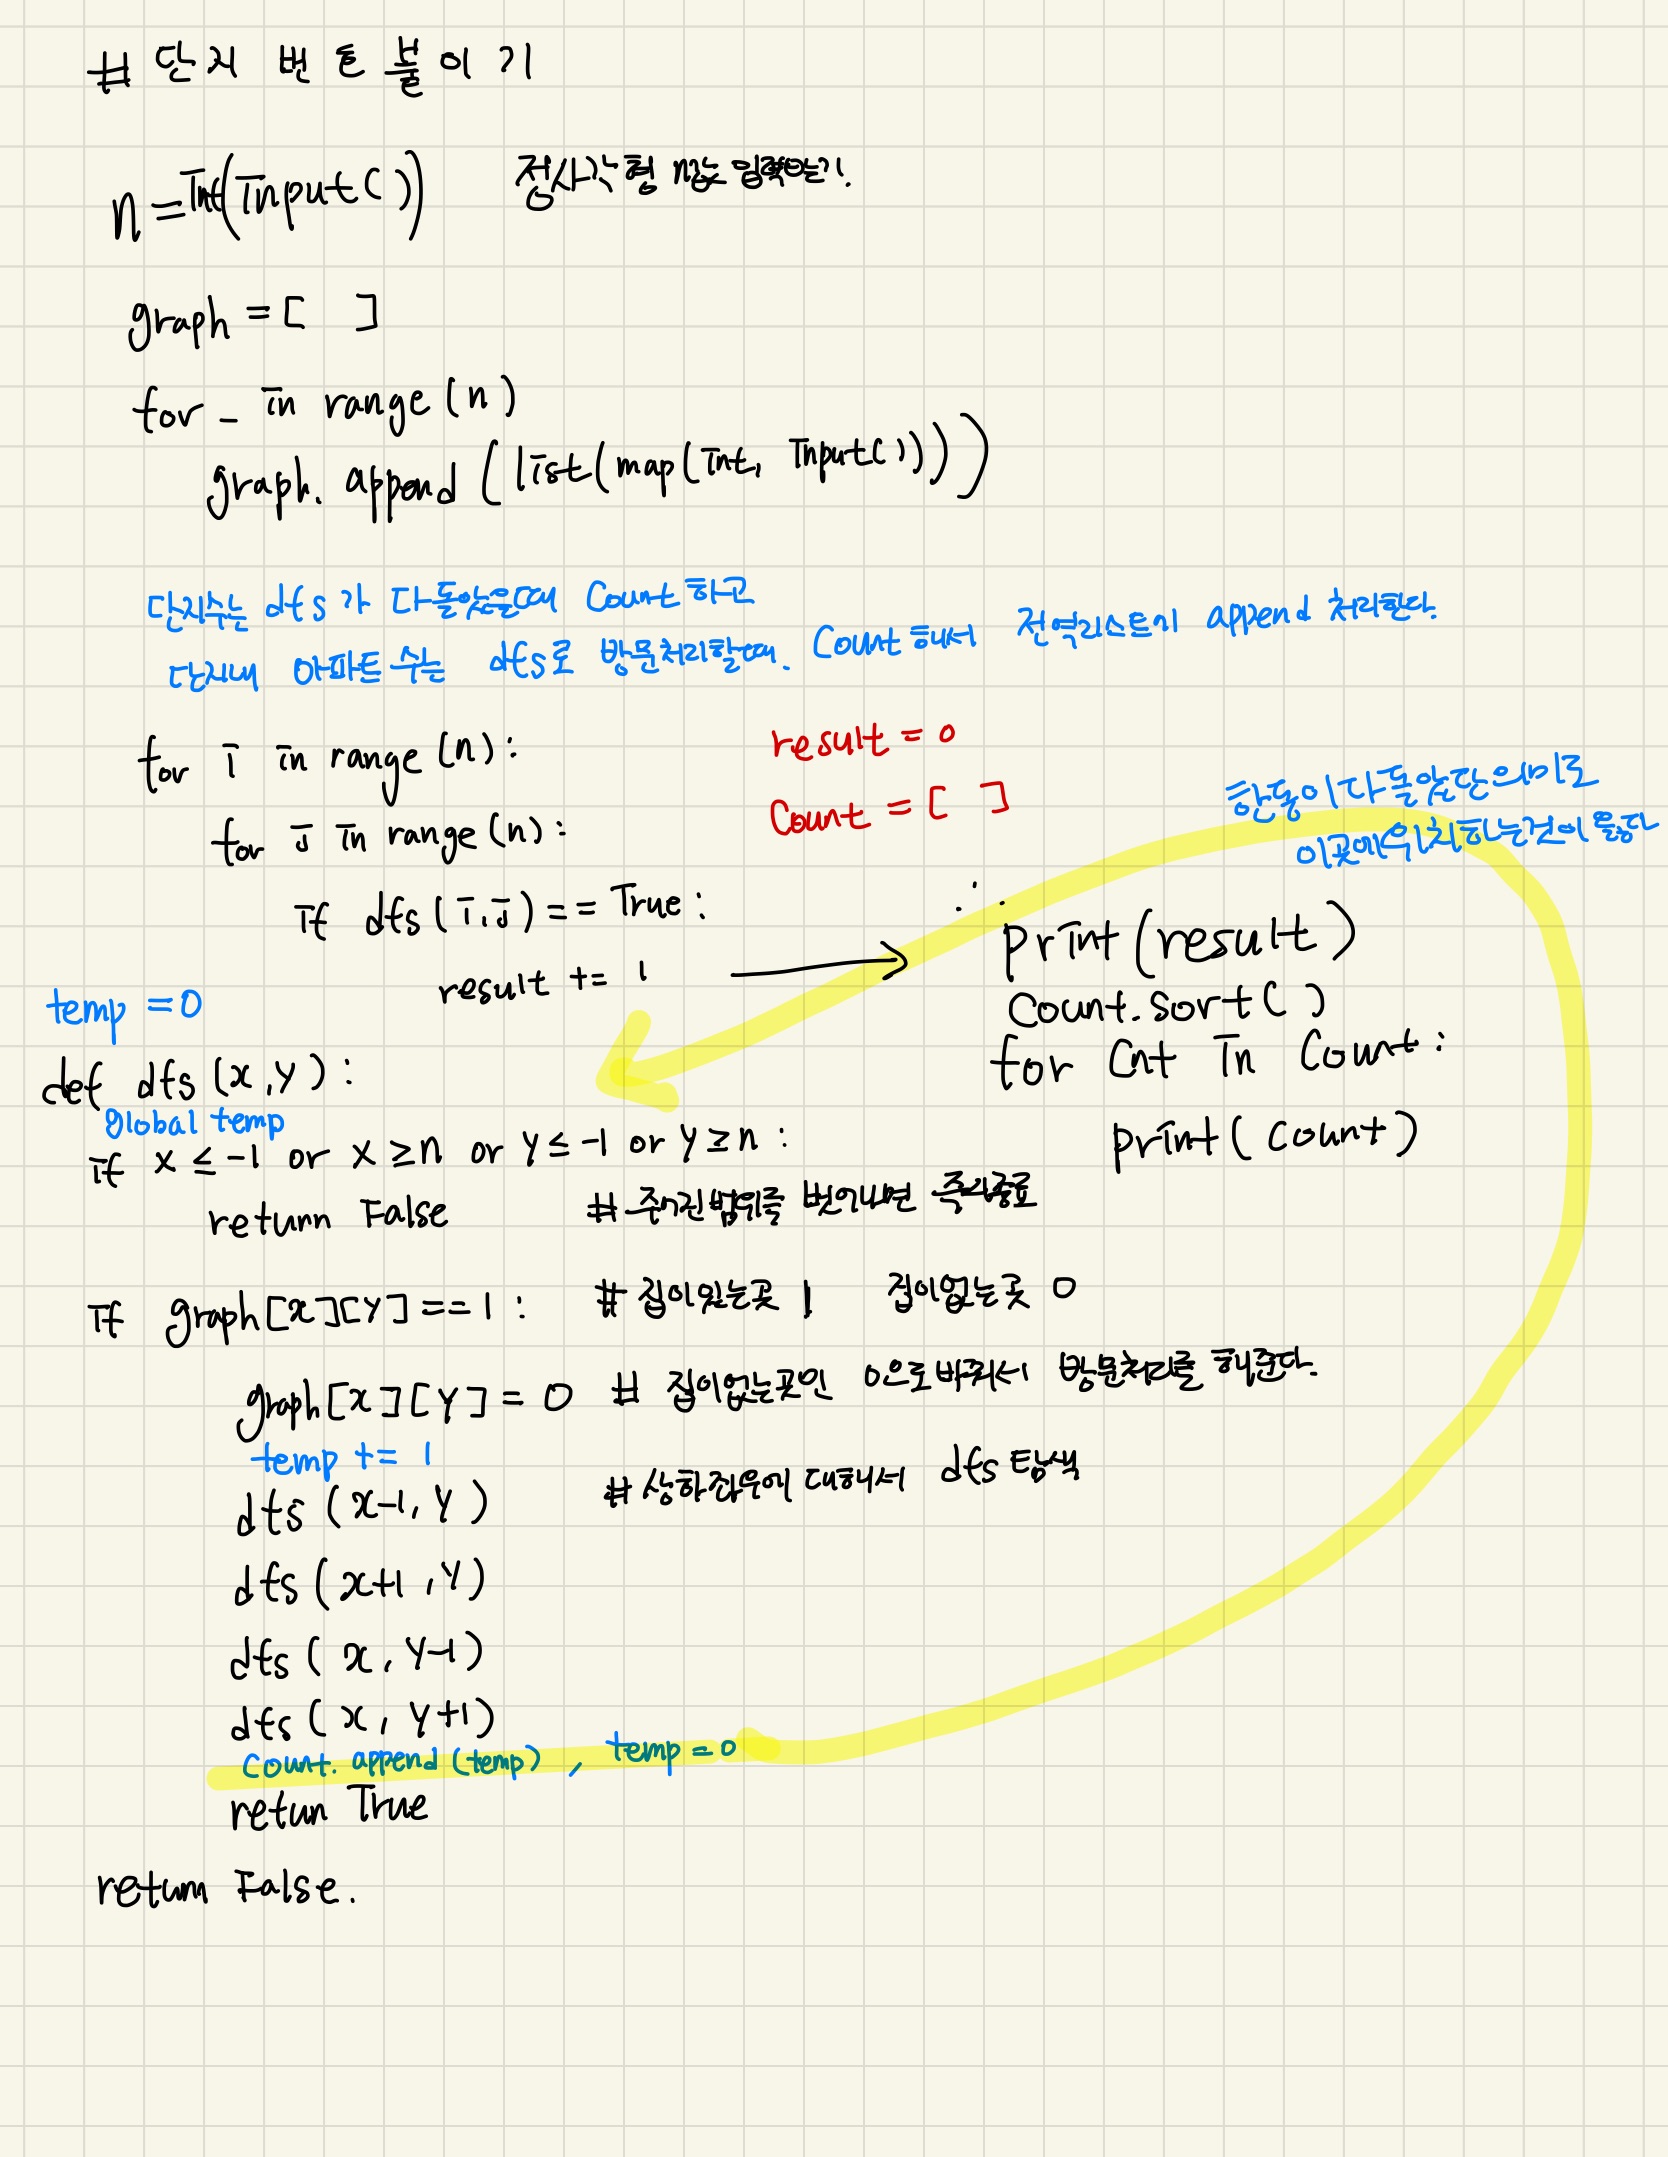 # 단지 번호 붙이기
n = int(input()) 정사각형 n값 입력받기.
graph = [ ]
for _ in range(n)
graph.append(list(map(int, input())))
단지수는 dfs가 다돌았을때 Count하고
단지내 아파트 수는 dfs로 방문처리할때. Count해서 전역리스트에 append 처리한다.
for i in range(n):
result = 0
for j in range(n):
Count = [ ]
한동이 다 돌았단 의미로
이곳에 위치하는것이 옳다
if dfs(i,j) == True:
result += 1 →
∴ print(result)
Count.sort()
for Cnt in Count:
print(Count)
temp = 0
def dfs(x,y):
global temp
if x ≤ -1 or x ≥ n or y ≤ -1 or y ≥ n:
return False # 주어진 범위를 벗어나면 즉시종료
if graph[x][y] == 1: # 집이있는곳 1 집이없는곳 0
graph[x][y] = 0 # 집이없는곳인 0으로바꿔서 방문처리를 해준다.
temp += 1
dfs(x-1, y) # 상하좌우에 대해서 dfs 탐색
dfs(x+1, y)
dfs(x, y-1)
dfs(x, y+1)
Count.append(temp), temp = 0
retun True
return False.